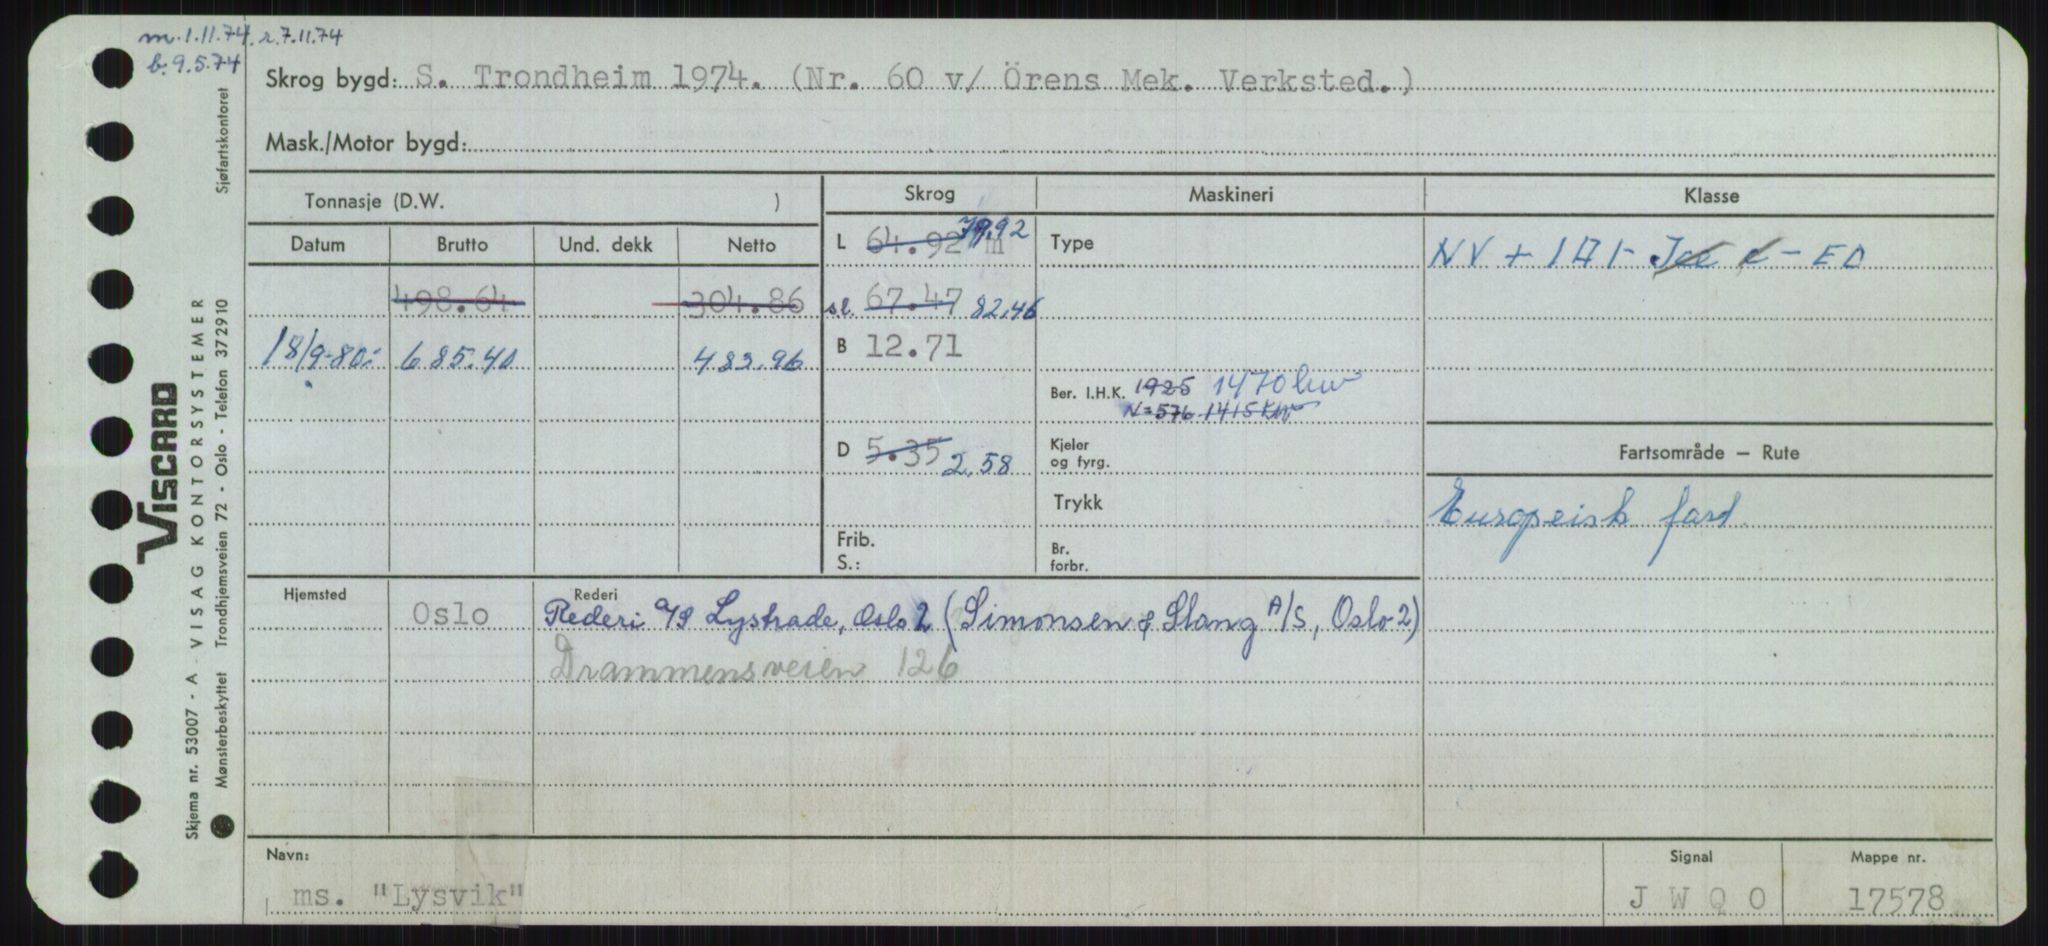 m.1.11.74. r.7.11.74
b.9.5.74
Skrog bygd: S. Trondheim 1974. (Nr. 60 v/ Örens Mek. Verksted.)
Mask./Motor bygd:
Tonnasje (D.W. )
Skrog
Maskineri
Klasse
Datum
Brutto
Und. dekk
Netto
L 64.92 m 79.92
Type
NV + 1A1- Ice C - EO
498.64
304.86
sl. 67.47 82,46
18/9-80:
685.40
483.96
B 12.71
Ber. I.H.K. 1925 1470 kW
N=576 1415 KW
D 5.35 2,58
Kjeler
og fyrg.
Fartsområde — Rute
Trykk
Europeisk fart
Frib.
S.:
Br.
forbr.
Hjemsted
Oslo
Rederi
Rederi A/S Lystrade, Oslo 2 (Simonsen & Slang A/S, Oslo 2)
Drammensveien 126
Navn:
ms. "Lysvik"
Signal
J W Q O
Mappe nr.
17578
VISCARD
Skjema nr. 53007 - A - VISAG KONTORSYSTEMER
Mønsterbeskyttet Trondhjemsveien 72 - Oslo - Telefon 372910 Sjøfartskontoret